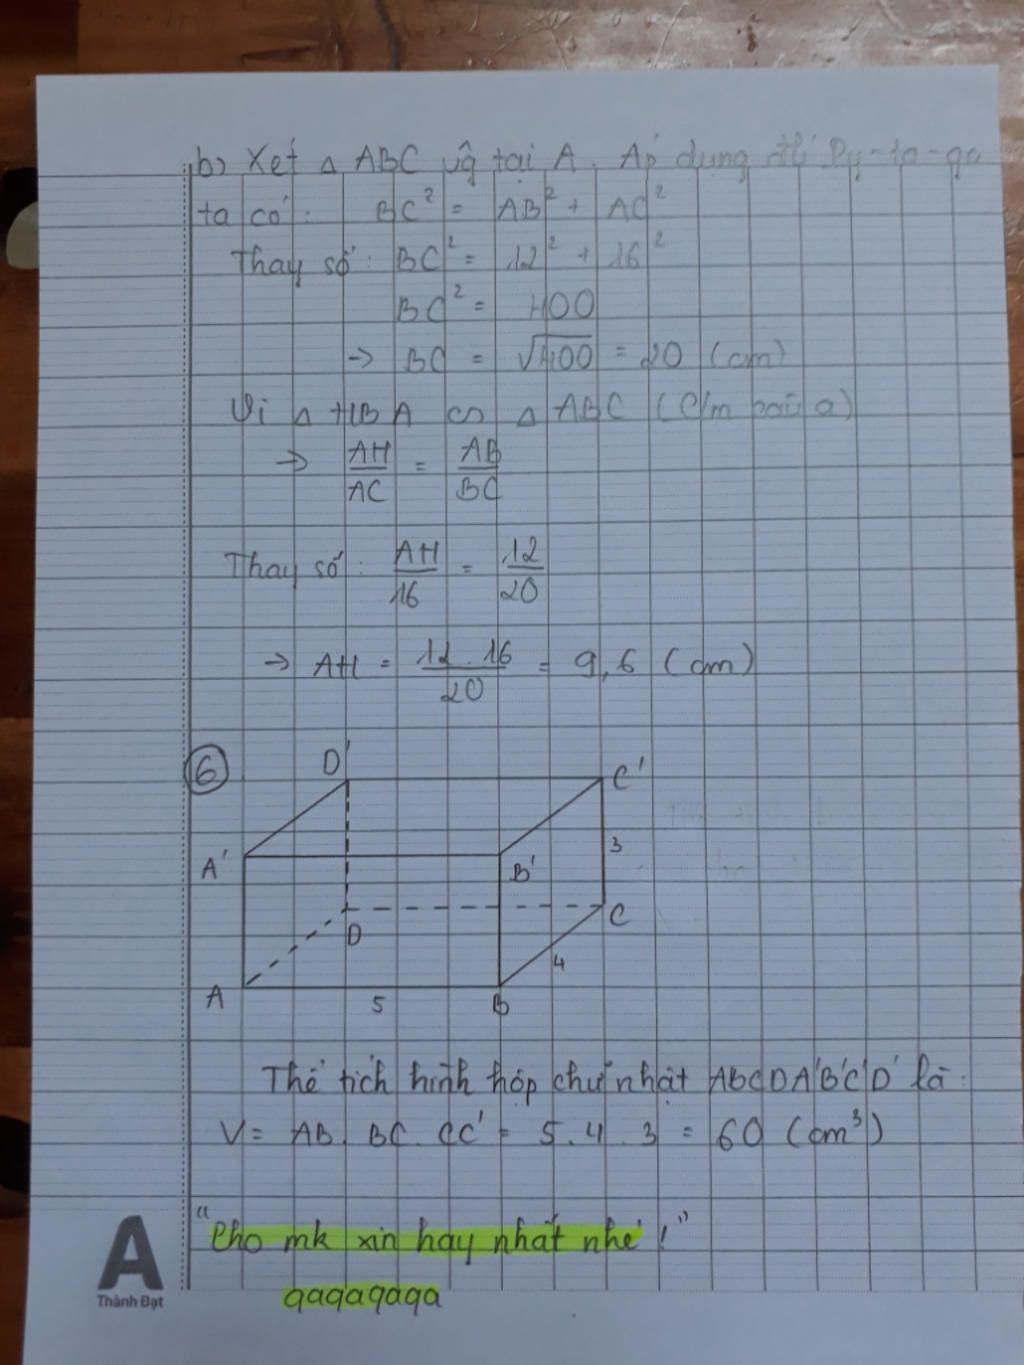 b) Xét △ ABC vg tại A. Áp dụng đl Py-ta-go
ta có: BC² = AB² + AC²
Thay số: BC² = 12² + 16²
BC² = 400
→ BC = √400 = 20 (cm)
Vì △ HBA ∽ △ ABC (C/m câu a)
→ AH/AC = AB/BC
Thay số: AH/16 = 12/20
→ AH = 12.16/20 = 9,6 (cm)
6
D' C'
A' B' 3
D C
4
A 5 B
Thể tích hình hộp chữ nhật ABCDA'B'C'D' là:
V = AB. BC. CC' = 5.4.3 = 60 (cm³)
"Cho mk xin hay nhất nhé!"
qaqaqaqa
A
Thành Đạt